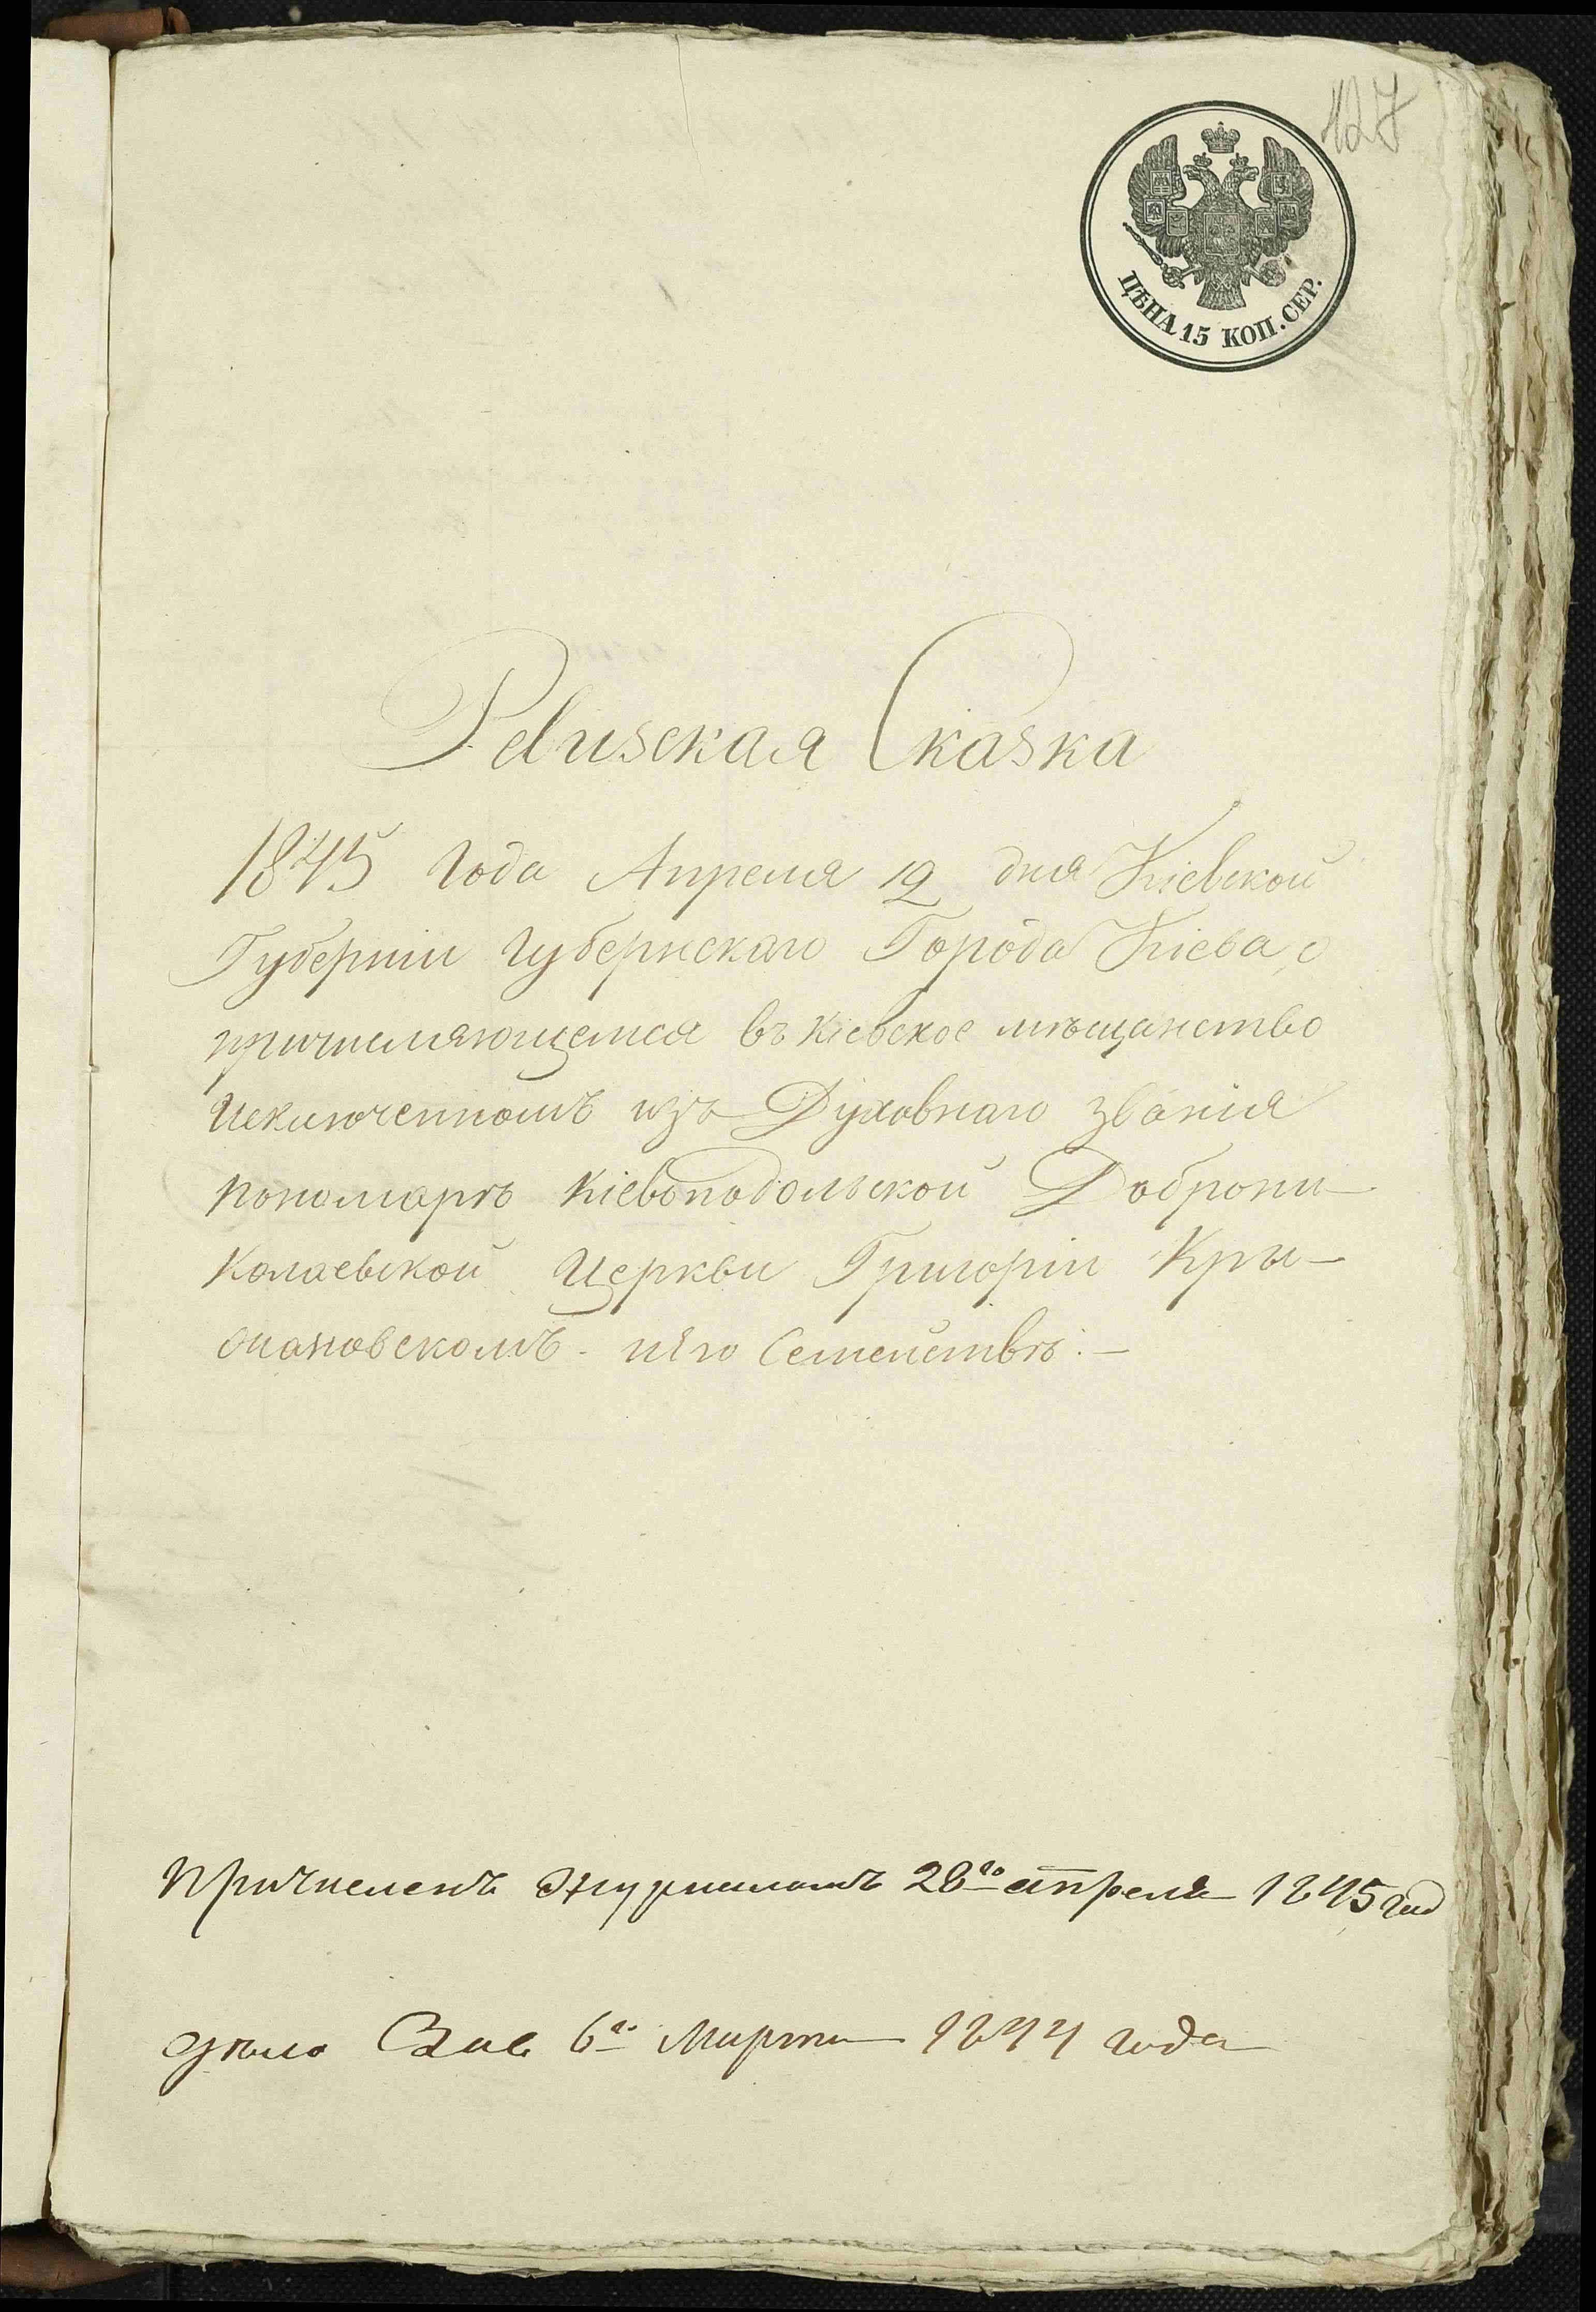 127
ЦѢНА 15 КОП. СЕР.
Ревизская Сказка
1845 года Апреля 12 дня Кіевской
Губерніи Губернскаго Города Кіева, о
причисляющемся въ Кіевское мѣщанство
Исключенномъ изъ Духовнаго званія
пономарѣ Кіевоподольской Доброни-
колаевской Церкви Григоріи Кры-
жановскомъ и его Семействѣ. —
Причисленъ Журналомъ 28го апреля 1845 года
дѣло 6го Марта 1844 года